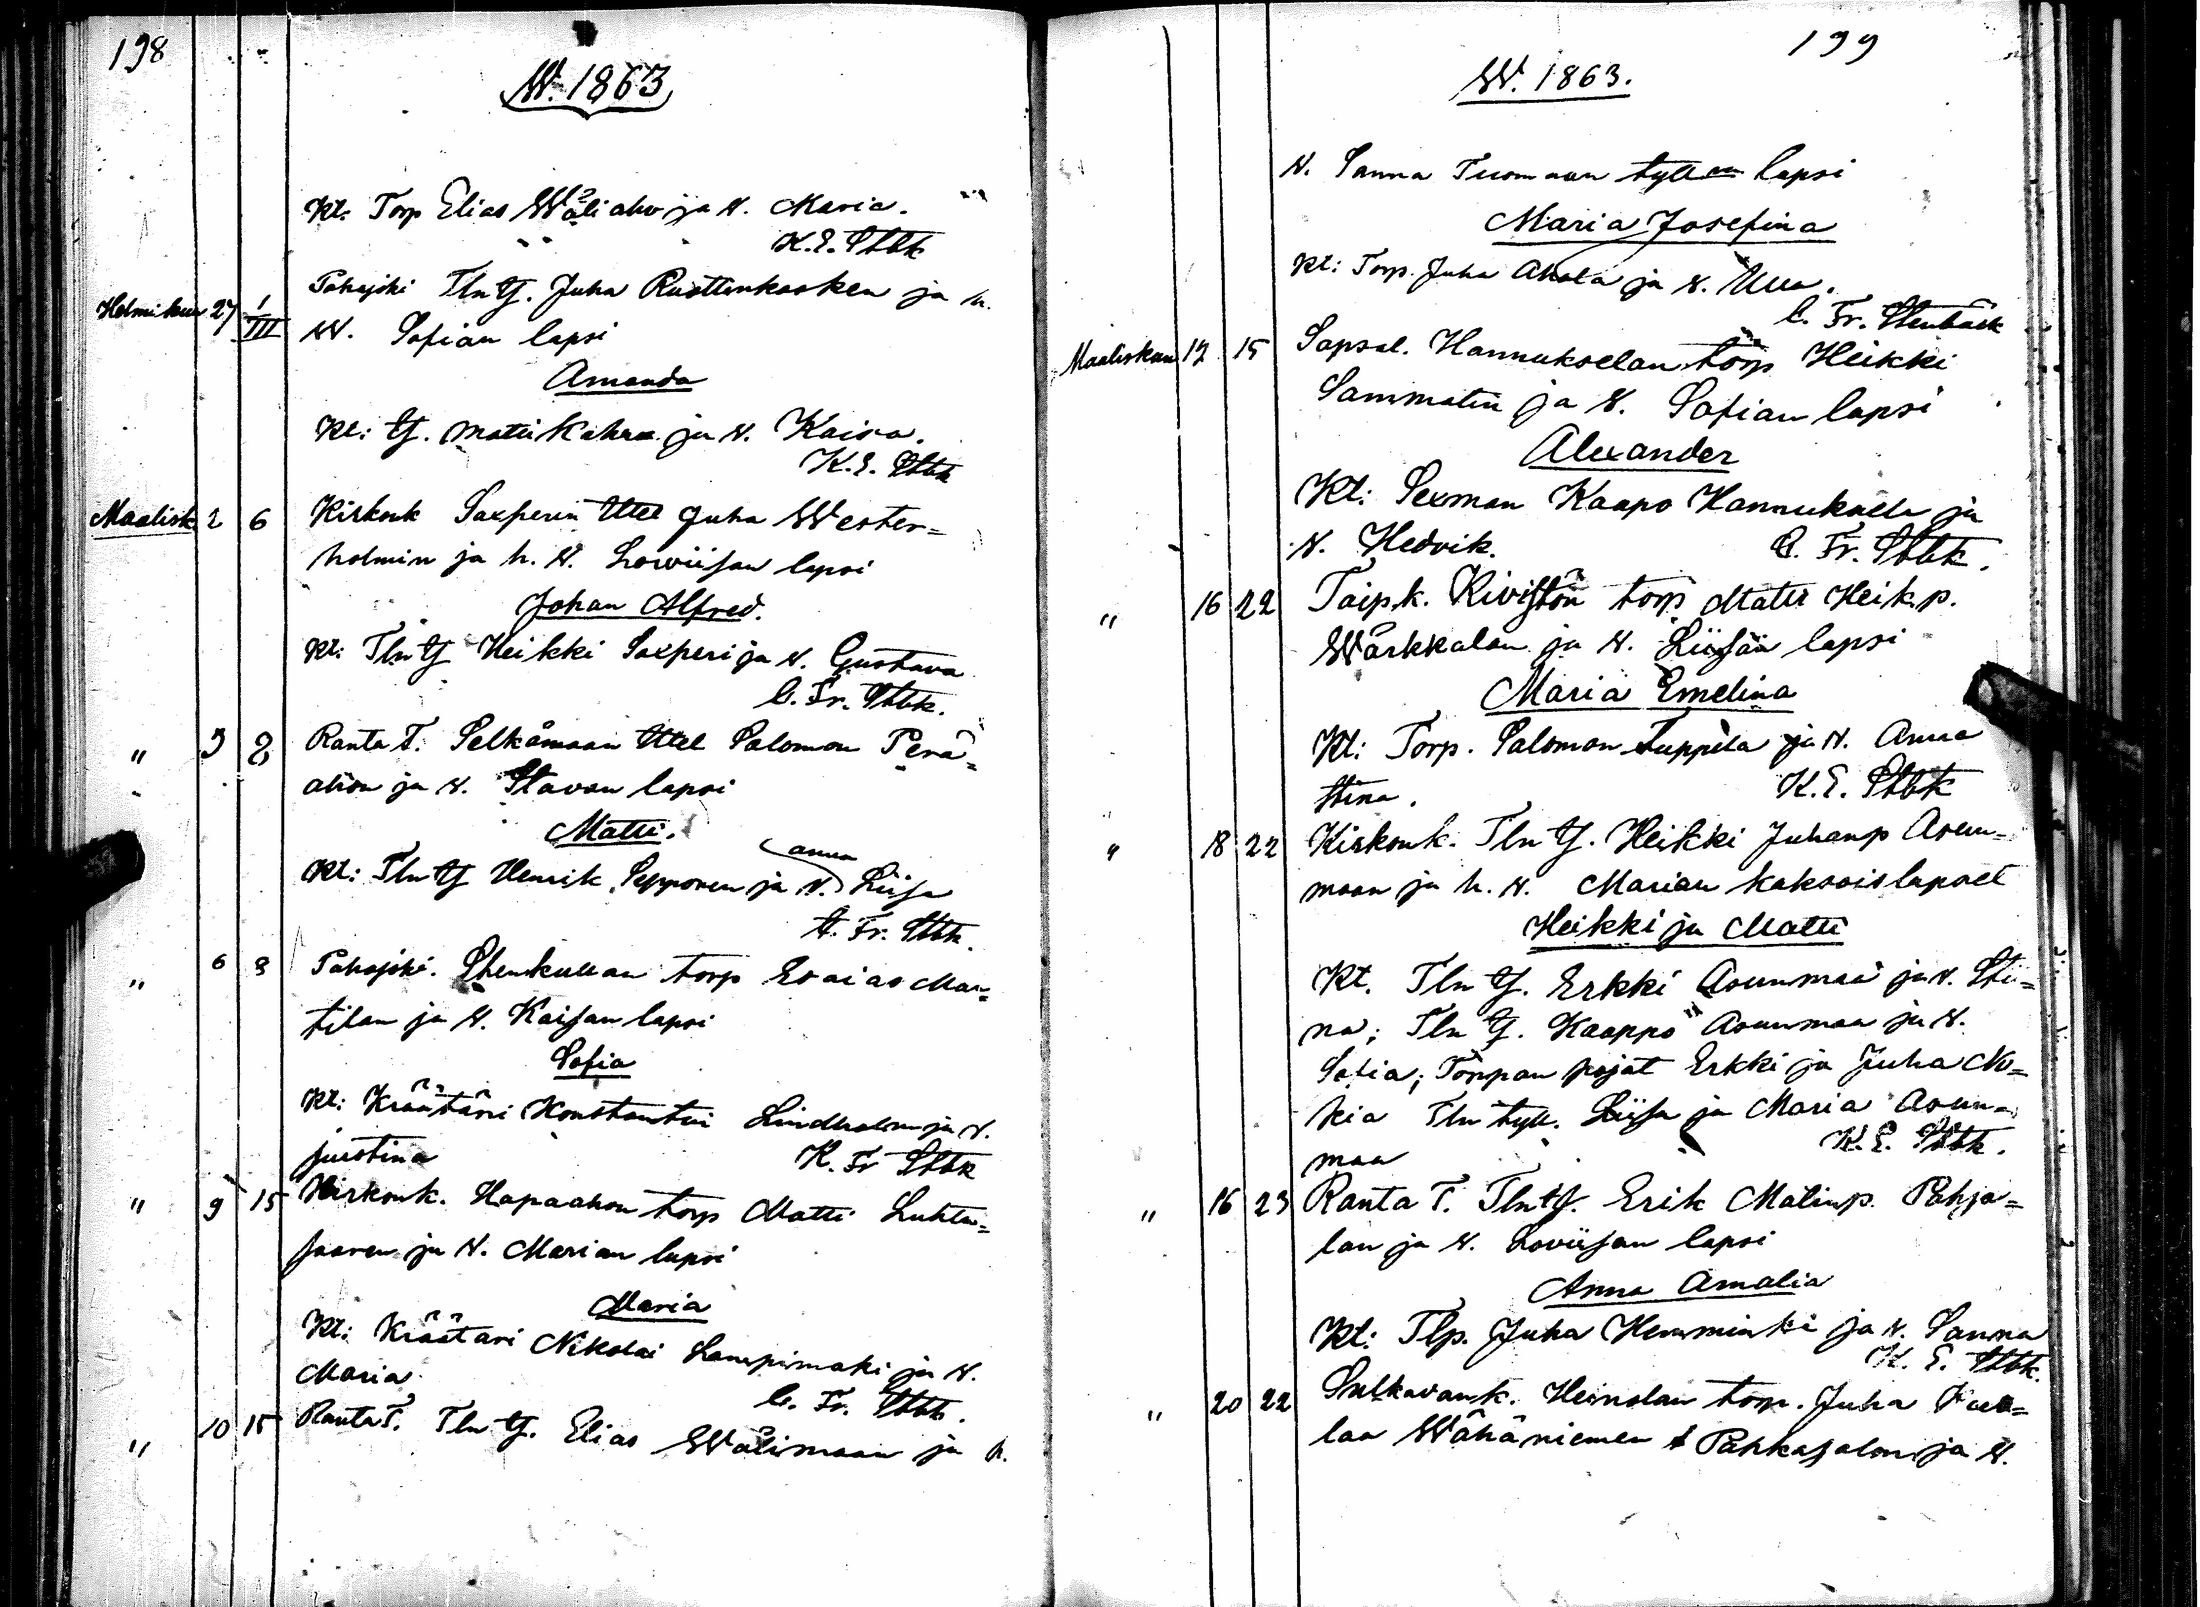 198
W. 1863
Kt: Torp Elias Wäliaho ja N. Maria.
K.E. Stbk
Helmikuu 27 1/III Pahajoki Tln tj. Juha Ruottenkosken ja h.
W. Sofian lapsi
Amanda
Kt: tj. Matti Kahra ja N. Kaisa.
K.E. Stbk
Maalisk 2 6 Kirkonk Saxperin Ittel Juha Wester=
holmin ja h. N. Lowiisan lapsi
Johan Alfred.
Kt: Tln tj Heikki Saxperi ja N. Gustava
C. Fr. Stbk.
" 3 8 Ranta T. Selkämaan Ittel Salomon Perä=
ahon ja N. Stavan lapsi
Matti.
anna
Kt: Tln tj Henrik Sepponen ja N. Liisa
A. Fr. Stbk.
" 6 8 Pahajoki. Stenkullan torp Esaias Mar=
tilan ja N. Kaisan lapsi
Sofia
Kt: Kräätäri Konstantin Lindholm ja N.
justina
K. Fr Stbk
" 9 15 Kirkonk. Hapaahon torp Matti Luhta=
saaren ja N. Marian lapsi
Maria
Kt: Kräätari Nikolai Lampimaki ja N.
Maria
C. Fr. Stbk.
" 10 15 Ranta T. Tln tj. Elias Wälimaan ja h.
199
W. 1863.
N. Sanna Tuomaan tytt lapsi
Maria Josefina
Kt: Torp. Juha Ahola ja N. Ulla.
C. Fr. Stenbäck
Maaliskuu 12 15 Sapsal. Hannukselan torp Heikki
Sammatin ja N. Sofian lapsi
Alexander
Kt: Sexman Kaapo Hannuksela ja
N. Hedvik.
C. Fr. Stbk.
" 16 22 Taipk. Kivistön torp Matti Heik.p.
Wärkkalan ja N. Liisan lapsi
Maria Emelina
Kt: Torp. Salomon Luppila ja N. Anna
Stina.
K.E. Stbk
" 18 22 Kirkonk. Tln tj. Heikki Juhanp Asun=
maan ja h. N. Marian kaksoislapset
Heikki ja Matti
Kt. Tln tj. Erkki Asunmaa ja N. Stii=
na; Tln tj. Kaappo Asunmaa ja N.
Sofia; Torpan pojat Erkki ja Juha No=
kia Tln tytt. Liisa ja Maria Asun=
maa
K.E. Stbk.
" 16 23 Ranta T. Tln tj. Erik Matinp. Pohja=
lan ja N. Loviisan lapsi
Anna Amalia
Kt: Tlp. Juha Hemminki ja N. Sanna
K. E. Stbk.
" 20 22 Sulkavank. Heinolan torp. Juha
laa Wähäniemen Pahkasalon ja N.